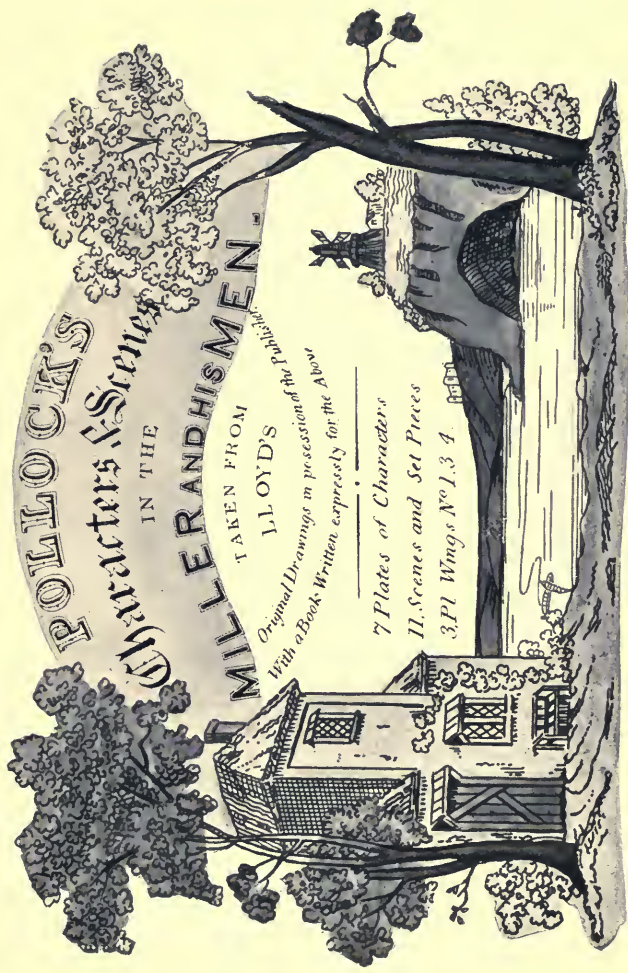 POLLOCK'S
Characters & Scenes
IN THE
MILLER AND HIS MEN.
TAKEN FROM
LLOYD'S
Original Drawings in posession of the Publisher.
With a Book Written expressly for the Above
7 Plates of Characters
11. Scenes and Set Pieces
3. Pl Wings No 1. 3 4.